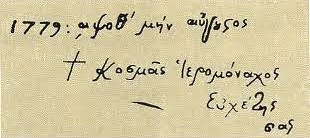 1779: αψοθ' μήν αὔγυςος
† Κοσμᾶς Ἱερομόναχος
Εὐχέτης
σας